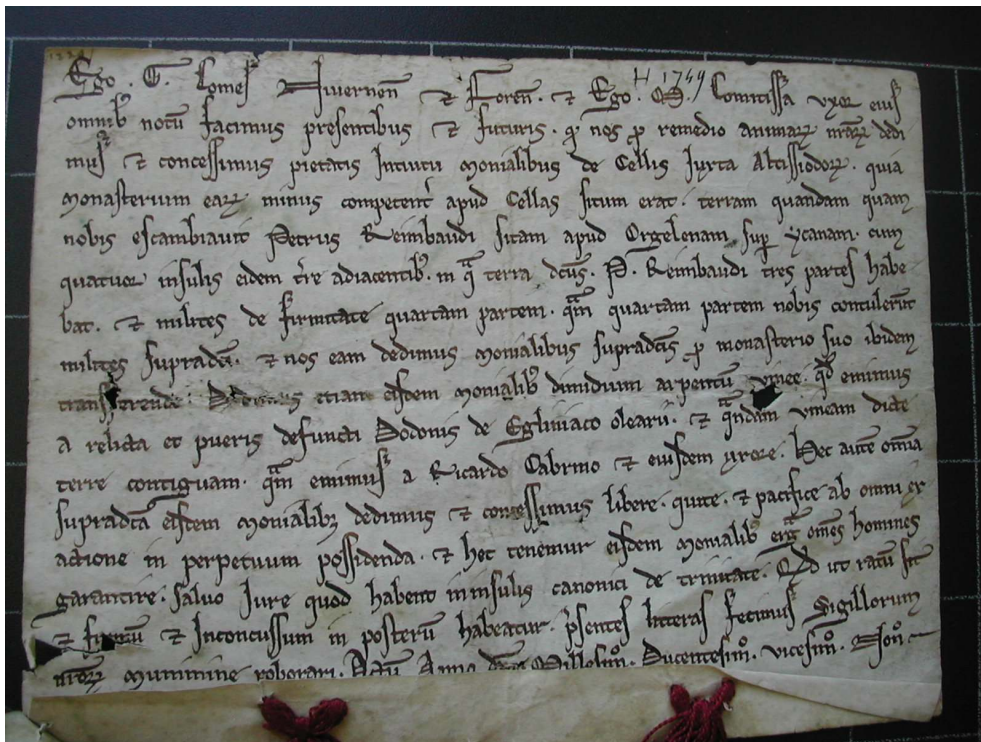 H 1749
Ego . G. Comes Nivernen̄ & Foren̄. & Ego . M. Comitissa uxor eius
omnib; notū facimus presentibus & futuris . qđ nos ꝓ remedio animaꝝ nr̄aꝝ dedi
mus & concessimus pietatis Intuitu Monialibus de Cellis Iuxta Altissiodoꝝ . quia
Monasterium eaꝝ minus competent̾ apud Cellas situm erat . terram quandam quam
nobis escambiavit Petrus Reimbaudi sitam apud Orgelenam sup̱ ycanam . cum
quatuor insulis eidem t̾re adiacentib; . in qͣ terra dc̄us . P . Reimbaudi tres partes habe
bat . & milites de firmitate quartam partem . qͣm quartam partem nobis contulerūt
milites supradc̄i . & nos eam dedimus Monialibus supradc̄is ꝓ monasterio suo ibidem
etiam eisdem monialib; dimidium arpentū vinee . qđ emimus
a relicta et pueris defuncti Dodonis de Egliniaco olearii . & qͣndam vineam dicte
terre contiguam . qͣm emimus a Ricardo Cabrino & eiusdem uxore . Hec autē om̄ia
supradc̄a eisdem Monialib; dedimus & concessimus libere . quite . & pacifice ab omni ex
actione in perpetuum possidenda . & hec tenemur eisdem Monialib; ergͣ om̄es homines
garantire . salvo Iure quod habent in insulis canonici de trinitate . Qđ ut ratū sit
& firmū & Inconcussum in posterū habeatur . p̄sentes litteras fecimus Sigillorum
nr̄oꝝ munimine roborari . Actū Anno dn̄i Millesimͦ . Ducentesimͦ . vicesimͦ . Nonͦ .